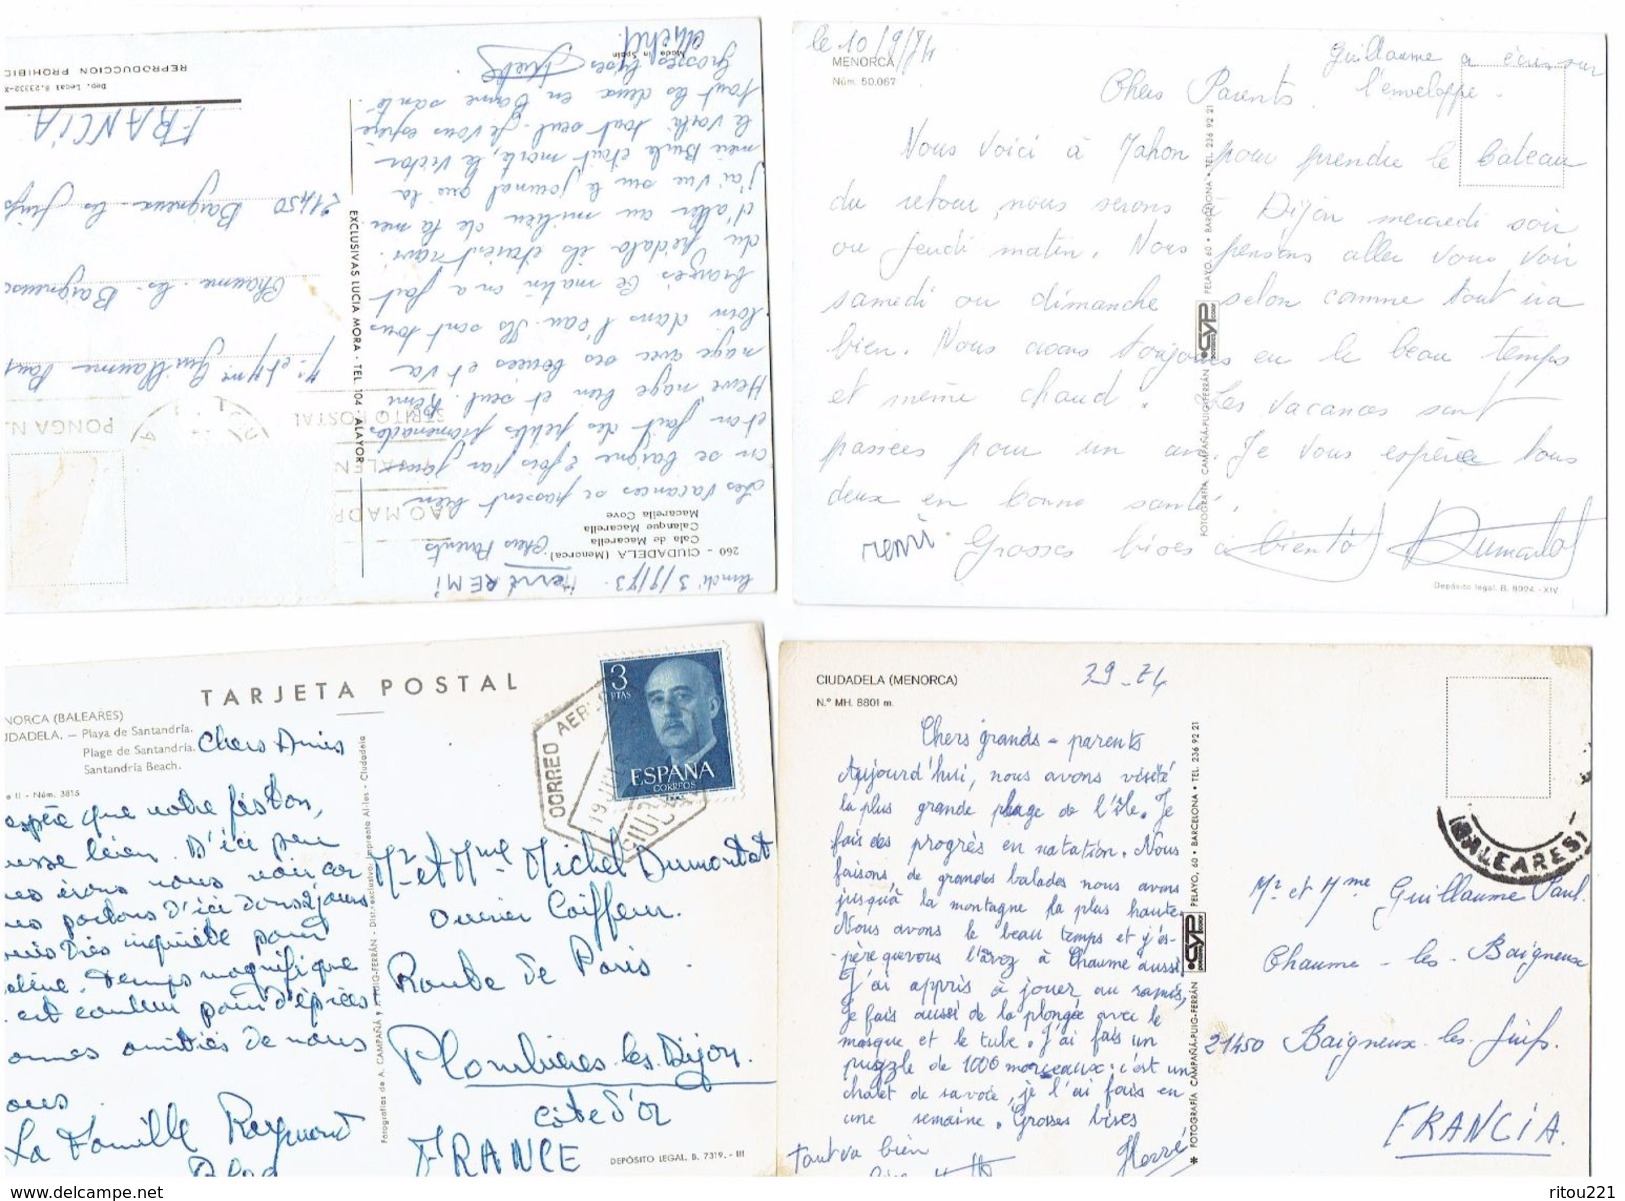 REPRODUCCION PROHIBIC
Dep. Legal B.23332-X
Made in Spain
260 - CIUDADELA (Menorca)
Cala de Macarella
Calanque Macarella
Macarella Cove
lundi 3/9/73. Hervé REMI
Chers Parents
Les vacances se passent bien
on se baigne 2 fois par jour
et on fait des petites promenades
Hervé nage bien et seul. Rémi
nage avec ses bouées et va
loin dans l'eau. Ils sont tous
bronzés. Ce matin on a fait
du pédalo ils étaient ravi
d'aller au milieu de la mer
j'ai vue sur le journal que la
meri Burla était morte, le Victor
le voilà tout seul. Je vous espère
tout les deux en bonne santé.
Grosses bises
Michel.
EXCLUSIVAS LUCIA MORA · TEL. 104 · ALAYOR
PONGA N.
Mr et Mme Guillaume Paul
Chaume-les-Baigneux
21450 Baigneux-les-Juifs
FRANCIA
le 10/9/74
MENORCA
Núm. 50.067
Guillaume a écris sur
l'enveloppe.
Chers Parents.
Nous voici à Mahon pour prendre le bateau
du retour, nous serons à Dijon mercredi soir
ou jeudi matin. Nous pensons aller vous voir
samedi ou dimanche selon comme tout ira
bien. Nous avons toujours eu le beau temps
et même chaud. Les vacances sont
passées pour un an. Je vous espère tous
deux en bonne santé.
remi. Grosses bises à bientôt Dumontot
FOTOGRAFÍA CAMPAÑÁ-PUIG-FERRÁN CYP PELAYO, 60 • BARCELONA • TEL. 236 92 21
Depósito legal. B. 8024.-XIV
TARJETA POSTAL
NORCA (BALEARES)
UDADELA. — Playa de Santandría.
Plage de Santandría.
Santandría Beach.
e II - Núm. 3815
Chers Amis
espère que votre feston,
usse bien. D'ici peu
us irons vous voir car
us partons d'ici dans 2 jours
uis très inquiète pour
lène. Temps magnifique
est couleur pain d'épices
onnes amitiés de nous
ous.
La Famille Raymond
Fotografías de A. CAMPAÑÁ y J. PUIG-FERRÁN - Dist. exclusivo: Imprenta Al·lés - Ciudadela
3
PTAS
ESPAÑA
CORREOS
CORREO AER
19 JUL
CIUD
Mr et Mme Michel Dumontot
Ouvrier Coiffeur.
Route de Paris.
Plombières-les-Dijon.
Côte d'Or
FRANCE
DEPÓSITO LEGAL, B. 7319. - III
CIUDADELA (MENORCA)
N.º MH. 8801 m.
29-74
Chers grands-parents
Aujourd'hui, nous avons visité
la plus grande plage de l'île. Je
fais des progrès en natation. Nous
faisons de grandes balades nous avons
jusqu'à la montagne la plus haute
Nous avons le beau temps et j'es-
père que vous l'avez à Chaume aussi
J'ai appris à jouer au ramis,
je fais aussi de la plongée avec le
masque et le tube. J'ai fais un
puzzle de 1000 morceaux: c'est un
chalet de savoie, je l'ai fais en
une semaine. Grosses bises
tout va bien Hervé
FOTOGRAFÍA CAMPAÑÁ-PUIG-FERRÁN CYP PELAYO, 60 • BARCELONA • TEL. 236 92 21
(BALEARES)
Mr et Mme Guillaume Paul.
Chaume-les-Baigneux
21450 Baigneux-les-Juifs.
FRANCIA.
www.delcampe.net
ritou221